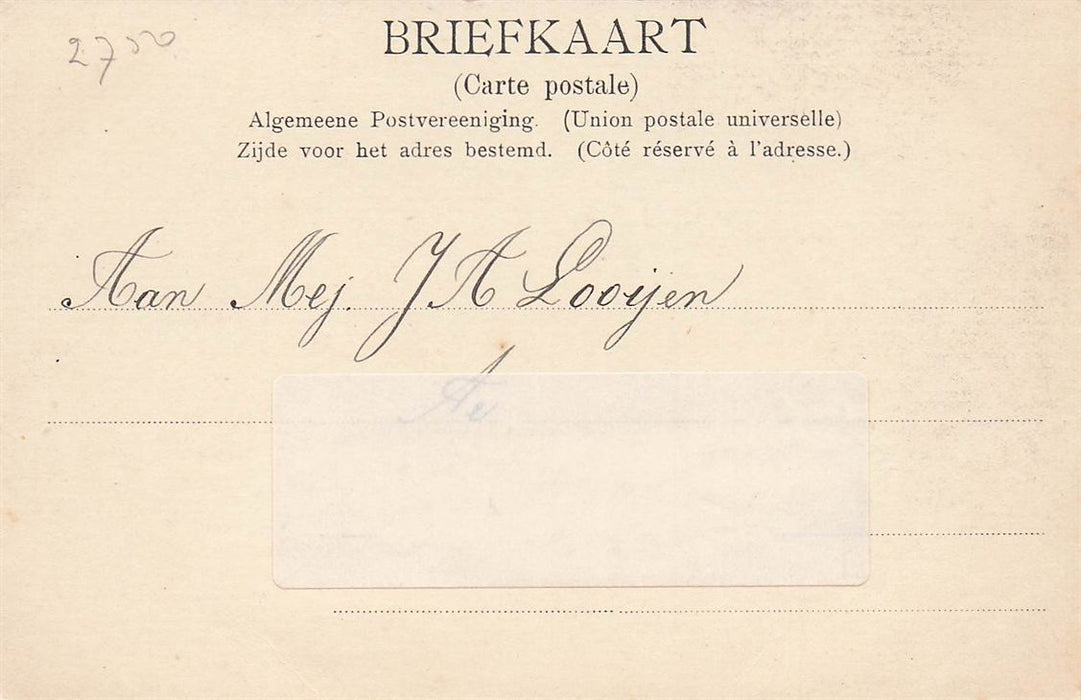 2750
BRIEFKAART
(Carte postale)
Algemeene Postvereeniging. (Union postale universelle)
Zijde voor het adres bestemd. (Côté réservé à l'adresse.)
Aan Mej. J A Looijen
Te